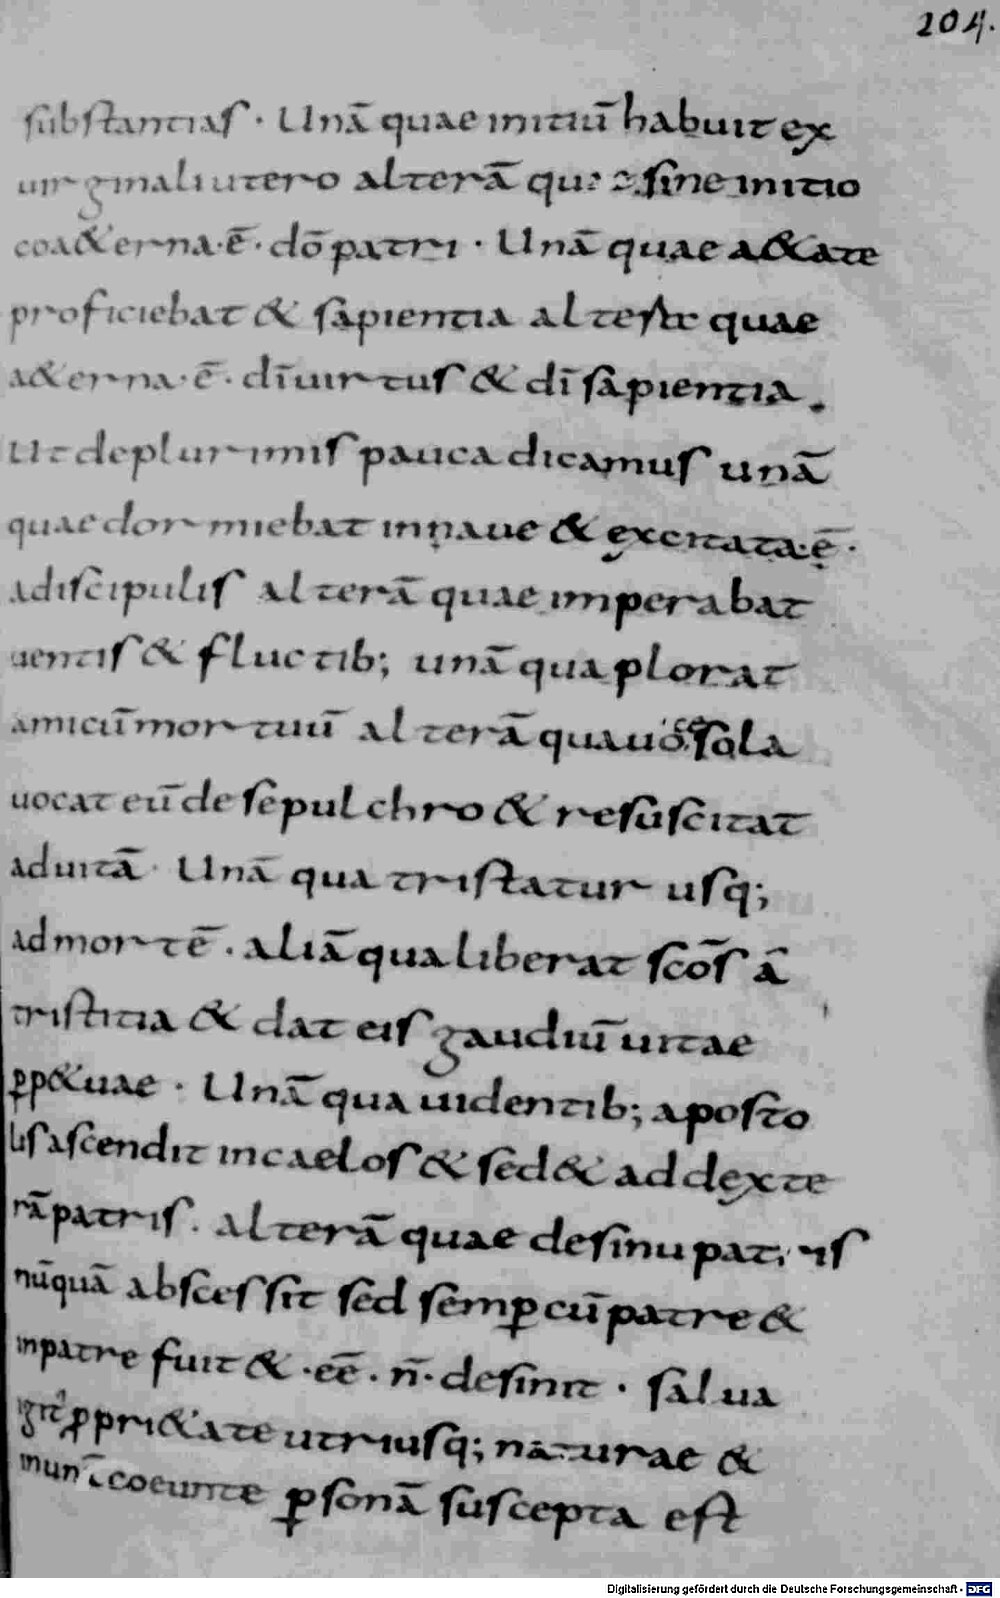 204.
substantias · Unā quae initiū habuit ex
uirginali utero alterā quae sine initio
coa&erna · ē · dō patri · Unā quae a&ate
proficiebat & sapientia alterā quae
a&erna · ē · dī uirtus & dī sapientia .
Ut de plurimis pauca dicamus unā
quae dormiebat in naue & excitata · ē ·
a discipulis alterā quae imperabat
uentis & fluctib; unā qua plorat
amicū mortuū alterā qua uoce sola
uocat eū de sepulchro & resuscitat
ad uitā · Unā qua tristatur usq;
ad mortē · aliā qua liberat scōs ā
tristitia & dat eis gaudiū uitae
ꝑp&uae · Unā qua uidentib; aposto
lis ascendit in caelos & sed& ad dexte
rā patris · alterā quae de sinu patris
nūquā abscessit sed semꝑ cū patre &
in patre fuit & · eē · n̄ · desinit · salua
igit ꝓpri&ate utriusq; naturae &
in unā coeunte ꝑsonā suscepta est
Digitalisierung gefördert durch die Deutsche Forschungsgemeinschaft - DFG